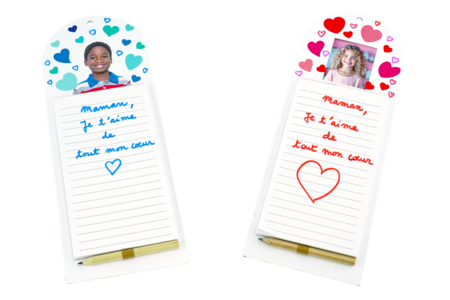 Maman,
Je t'aime
de
tout mon cœur
Maman,
Je t'aime
de
tout mon cœur